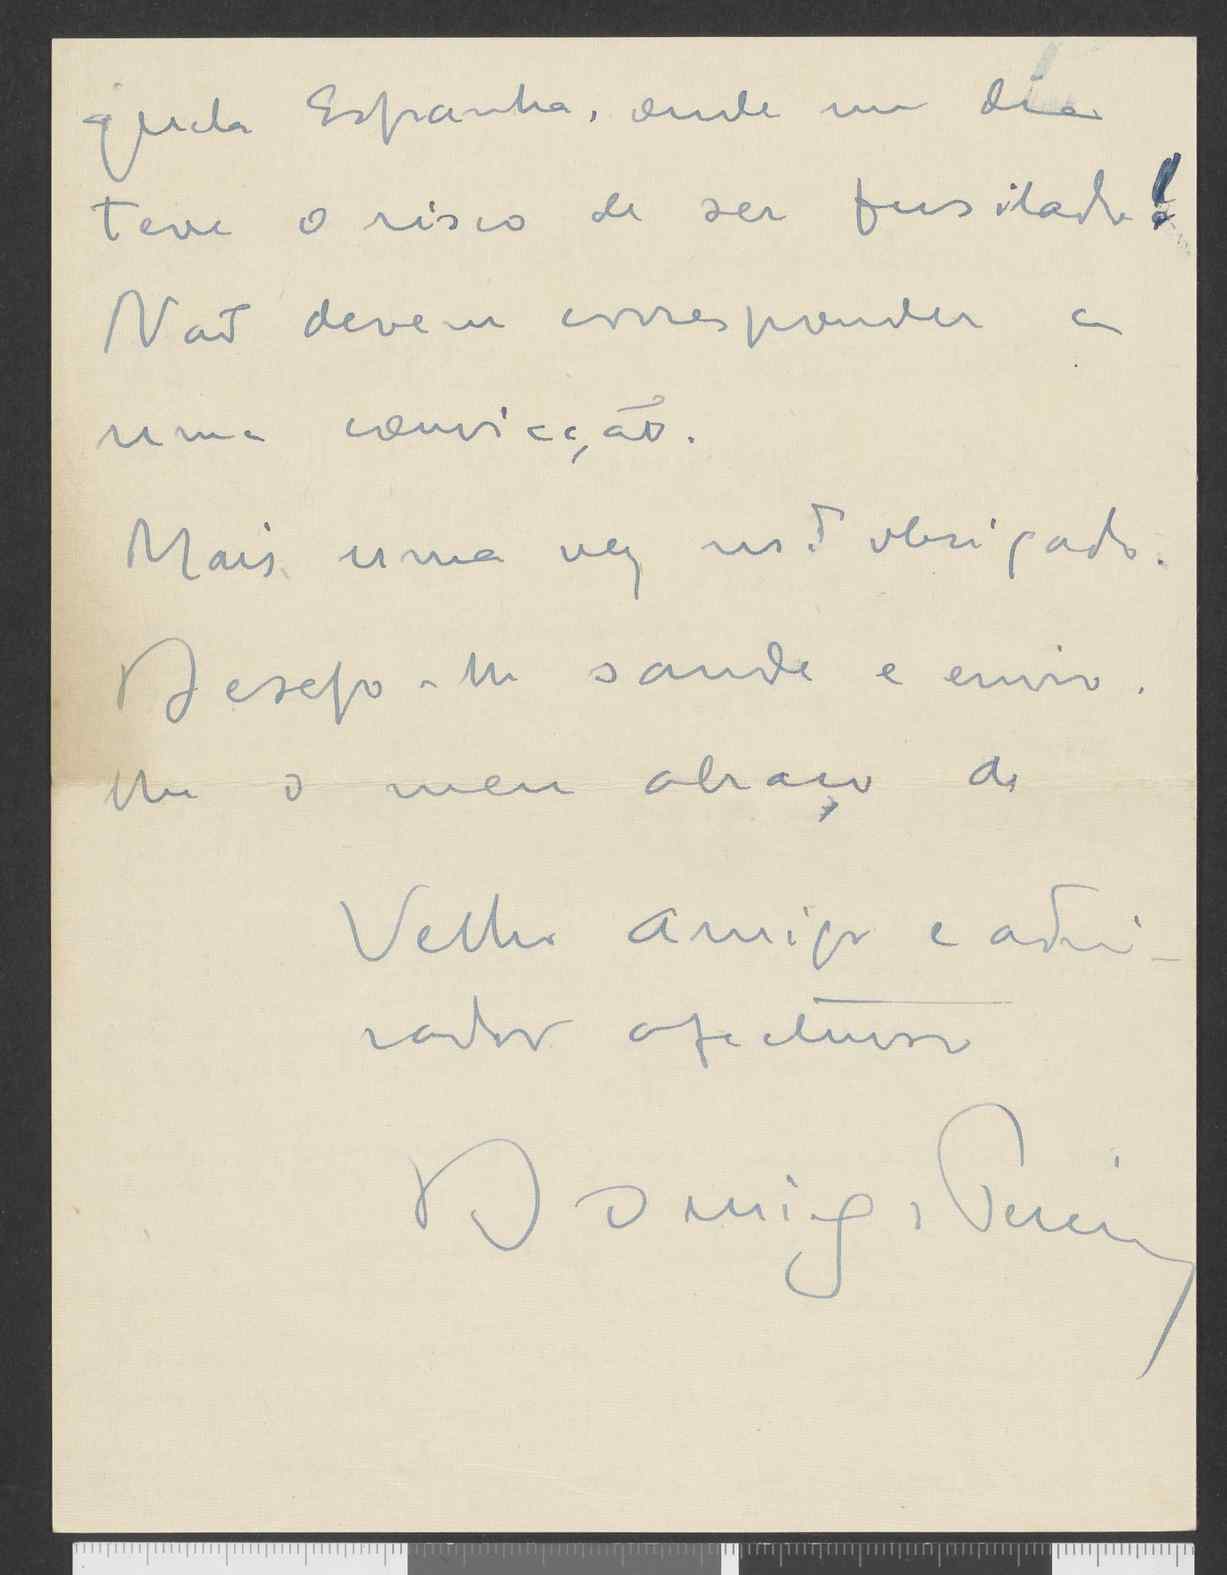 quela Espanha, onde um dia
teve o risco de ser fusilado!
Não devem corresponder a
uma convicção.
Mais uma vez mt.º obrigado.
Desejo-lhe saude e envio-
lhe o meu abraço de
Velho amigo e admi-
rador afectuoso
Domingos Pereira